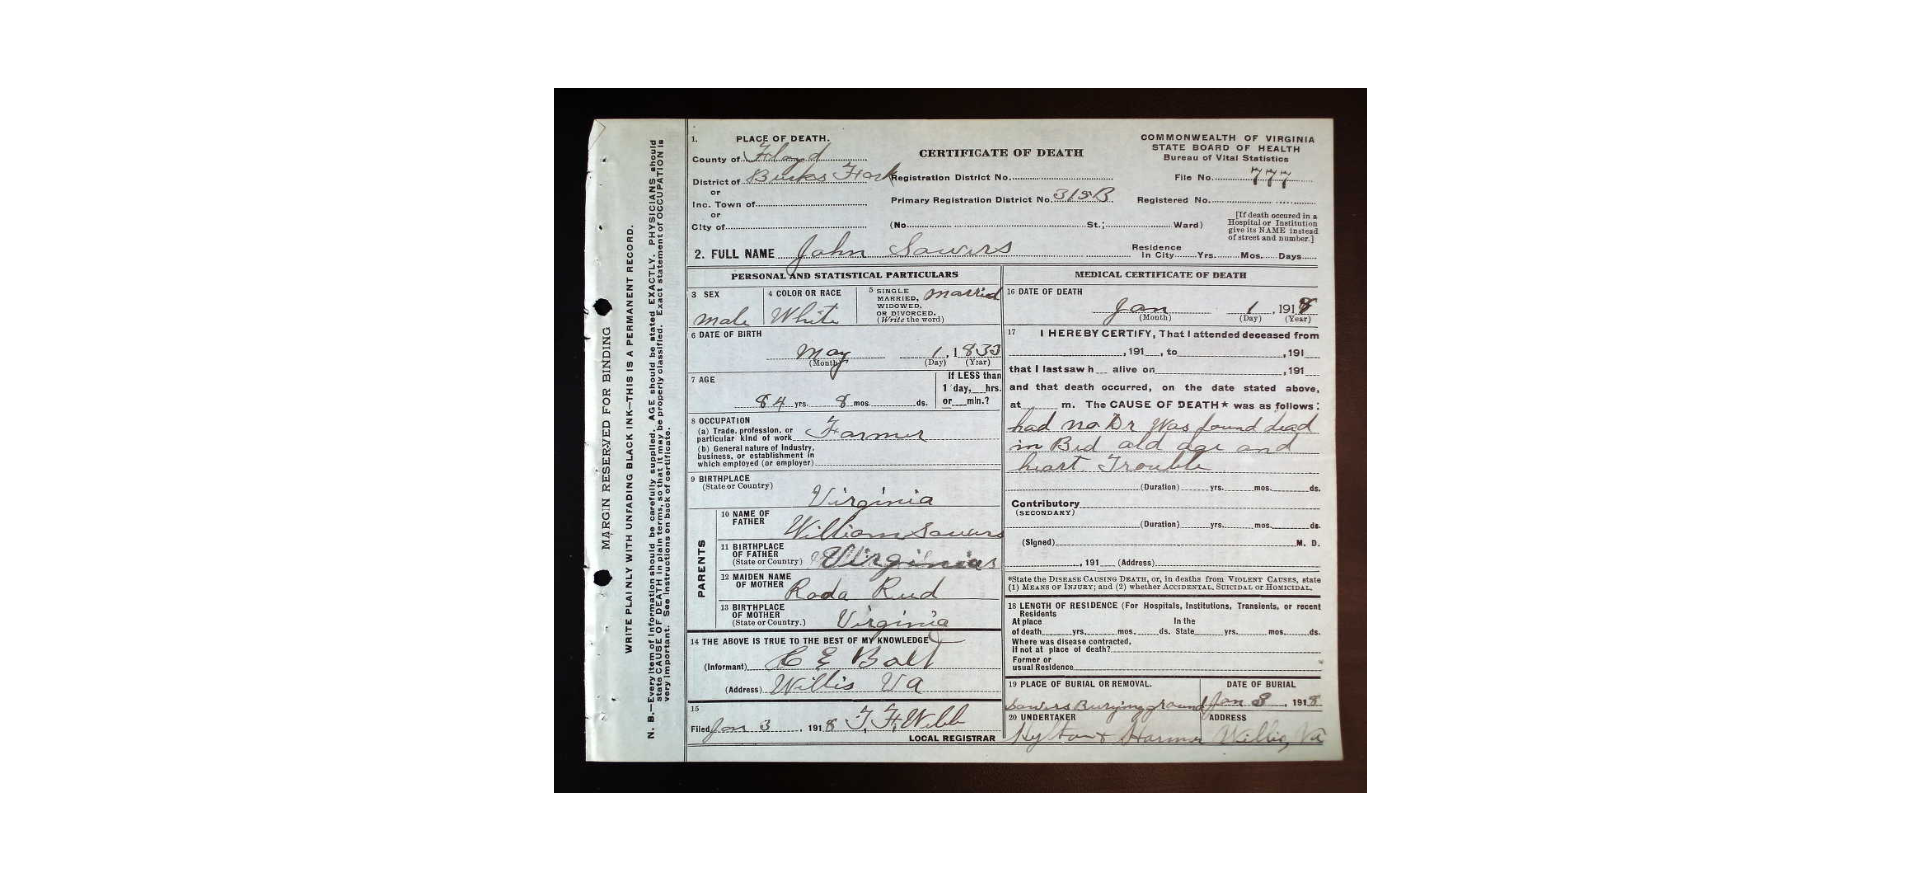 MARGIN RESERVED FOR BINDING
WRITE PLAINLY WITH UNFADING BLACK INK—THIS IS A PERMANENT RECORD.
N. B.—Every item of information should be carefully supplied. AGE should be stated EXACTLY. PHYSICIANS should
state CAUSE OF DEATH in plain terms, so that it may be properly classified. Exact statement of OCCUPATION is
very important. See instructions on back of certificate.
1. PLACE OF DEATH.
County of Floyd
District of Burks Fork
or
Inc. Town of
or
City of
CERTIFICATE OF DEATH
Registration District No.
Primary Registration District No. 318B
(No. St.; Ward)
COMMONWEALTH OF VIRGINIA
STATE BOARD OF HEALTH
Bureau of Vital Statistics
File No. 777
Registered No.
[If death occured in a
Hospital or Institution
give its NAME instead
of street and number.]
2. FULL NAME John Sowers
Residence
In City Yrs. Mos. Days
PERSONAL AND STATISTICAL PARTICULARS
3 SEX
male
4 COLOR OR RACE
White
5 SINGLE
MARRIED,
WIDOWED,
OR DIVORCED.
(Write the word)
married
6 DATE OF BIRTH
May 1, 1833
(Month) (Day) (Year)
7 AGE
84 yrs. 8 mos. ds.
If LESS than
1 day, hrs.
or min.?
8 OCCUPATION
(a) Trade, profession, or
particular kind of work Farmer
(b) General nature of Industry,
business, or establishment in
which employed (or employer)
9 BIRTHPLACE
(State or Country)
Virginia
PARENTS
10 NAME OF
FATHER
William Sowers
11 BIRTHPLACE
OF FATHER
(State or Country) Virginia
12 MAIDEN NAME
OF MOTHER
Roda Reed
13 BIRTHPLACE
OF MOTHER
(State or Country.) Virginia
14 THE ABOVE IS TRUE TO THE BEST OF MY KNOWLEDGE
(Informant) C E Bolt
(Address) Willis Va
15
Filed Jan 3, 1918 T. F. Webb
LOCAL REGISTRAR
MEDICAL CERTIFICATE OF DEATH
16 DATE OF DEATH
Jan 1, 1918
(Month) (Day) (Year)
17 I HEREBY CERTIFY, That I attended deceased from
, 191 , to , 191
that I last saw h alive on , 191
and that death occurred, on the date stated above,
at m. The CAUSE OF DEATH* was as follows:
had no Dr Was found dead
in Bed old age and
heart Trouble
(Duration) yrs. mos. ds.
Contributory
(SECONDARY)
(Duration) yrs. mos. ds.
(Signed) M. D.
, 191 (Address)
*State the DISEASE CAUSING DEATH, or, in deaths from VIOLENT CAUSES, state
(1) MEANS OF INJURY; and (2) whether ACCIDENTAL, SUICIDAL or HOMICIDAL.
18 LENGTH OF RESIDENCE (For Hospitals, Institutions, Transients, or recent
Residents
At place In the
of death yrs. mos. ds. State yrs. mos. ds.
Where was disease contracted,
if not at place of death?
Former or
usual Residence
19 PLACE OF BURIAL OR REMOVAL.
Sowers Burying ground
DATE OF BURIAL
Jan 3, 1918
20 UNDERTAKER
Hylton & Harmon
ADDRESS
Willis, Va